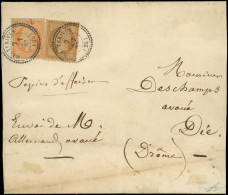 Monsieur
Papiers d'affaires
Deschamps
avoué
Envoi de M.
Die
Allemand, avoué
(Drôme)